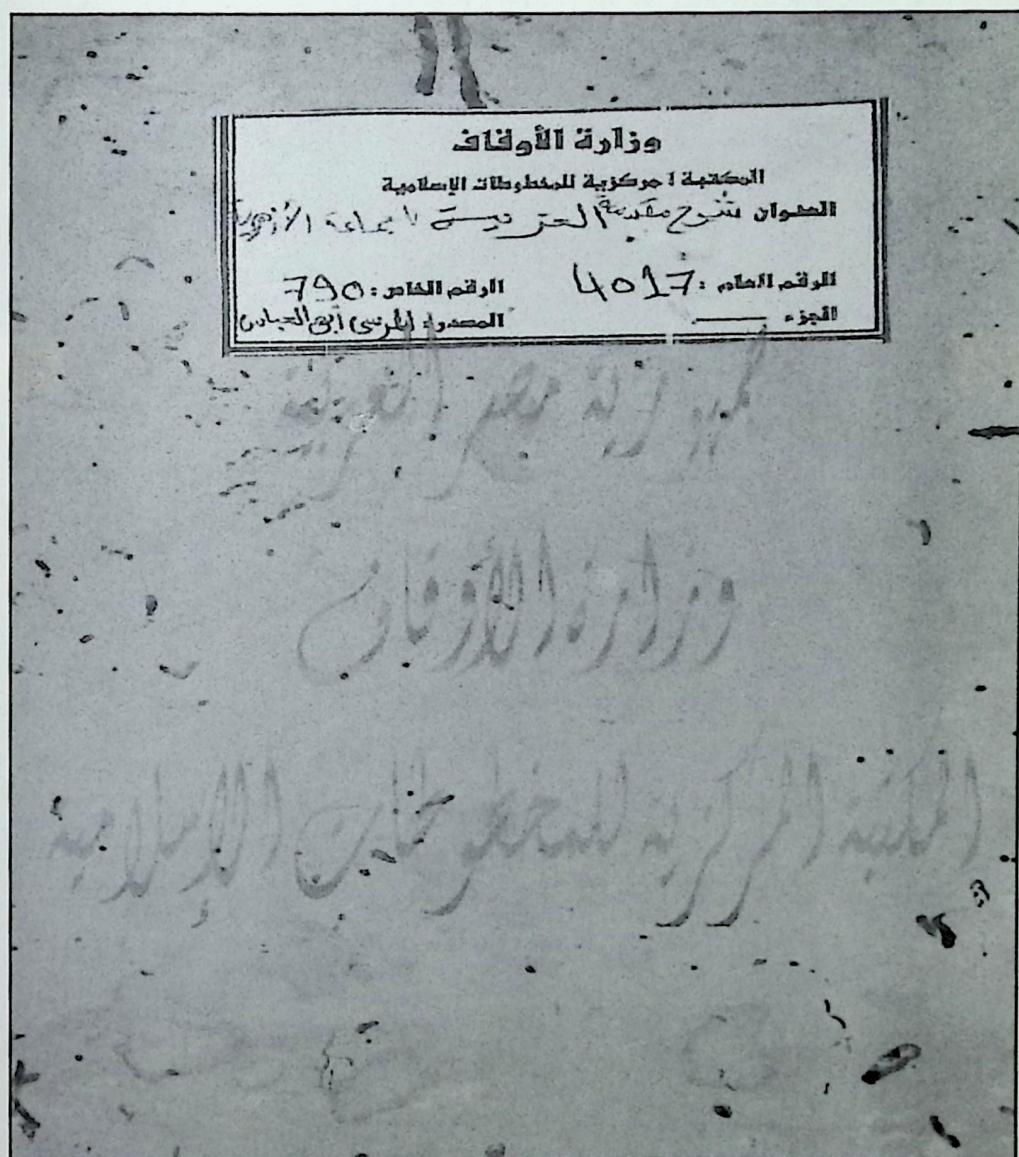 وزارة الأوقاف
المكتبة المركزية للمخطوطات الإسلامية
العنوان شرح مقدمة العزية الجماعة الأزهرية
الرقم العام : 4017 الرقم الخاص : 790
الجزء ـــــ المصدر : المرسى أبى العباس
جمهورية مصر العربية
وزارة الأوقاف
المكتبة المركزية للمخطوطات الإسلامية